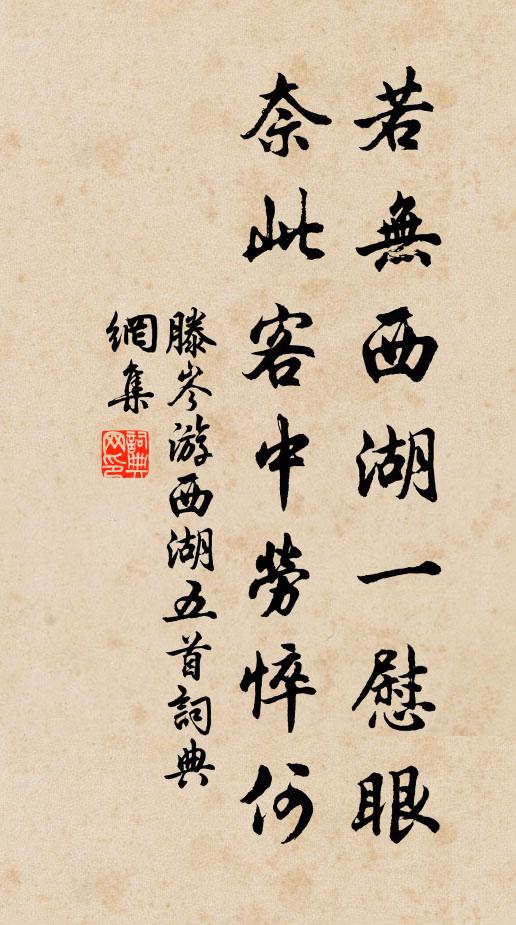 若無西湖一慰眼
奈此客中勞悴何
滕岑游西湖五首詞典
網集
詞典
网印